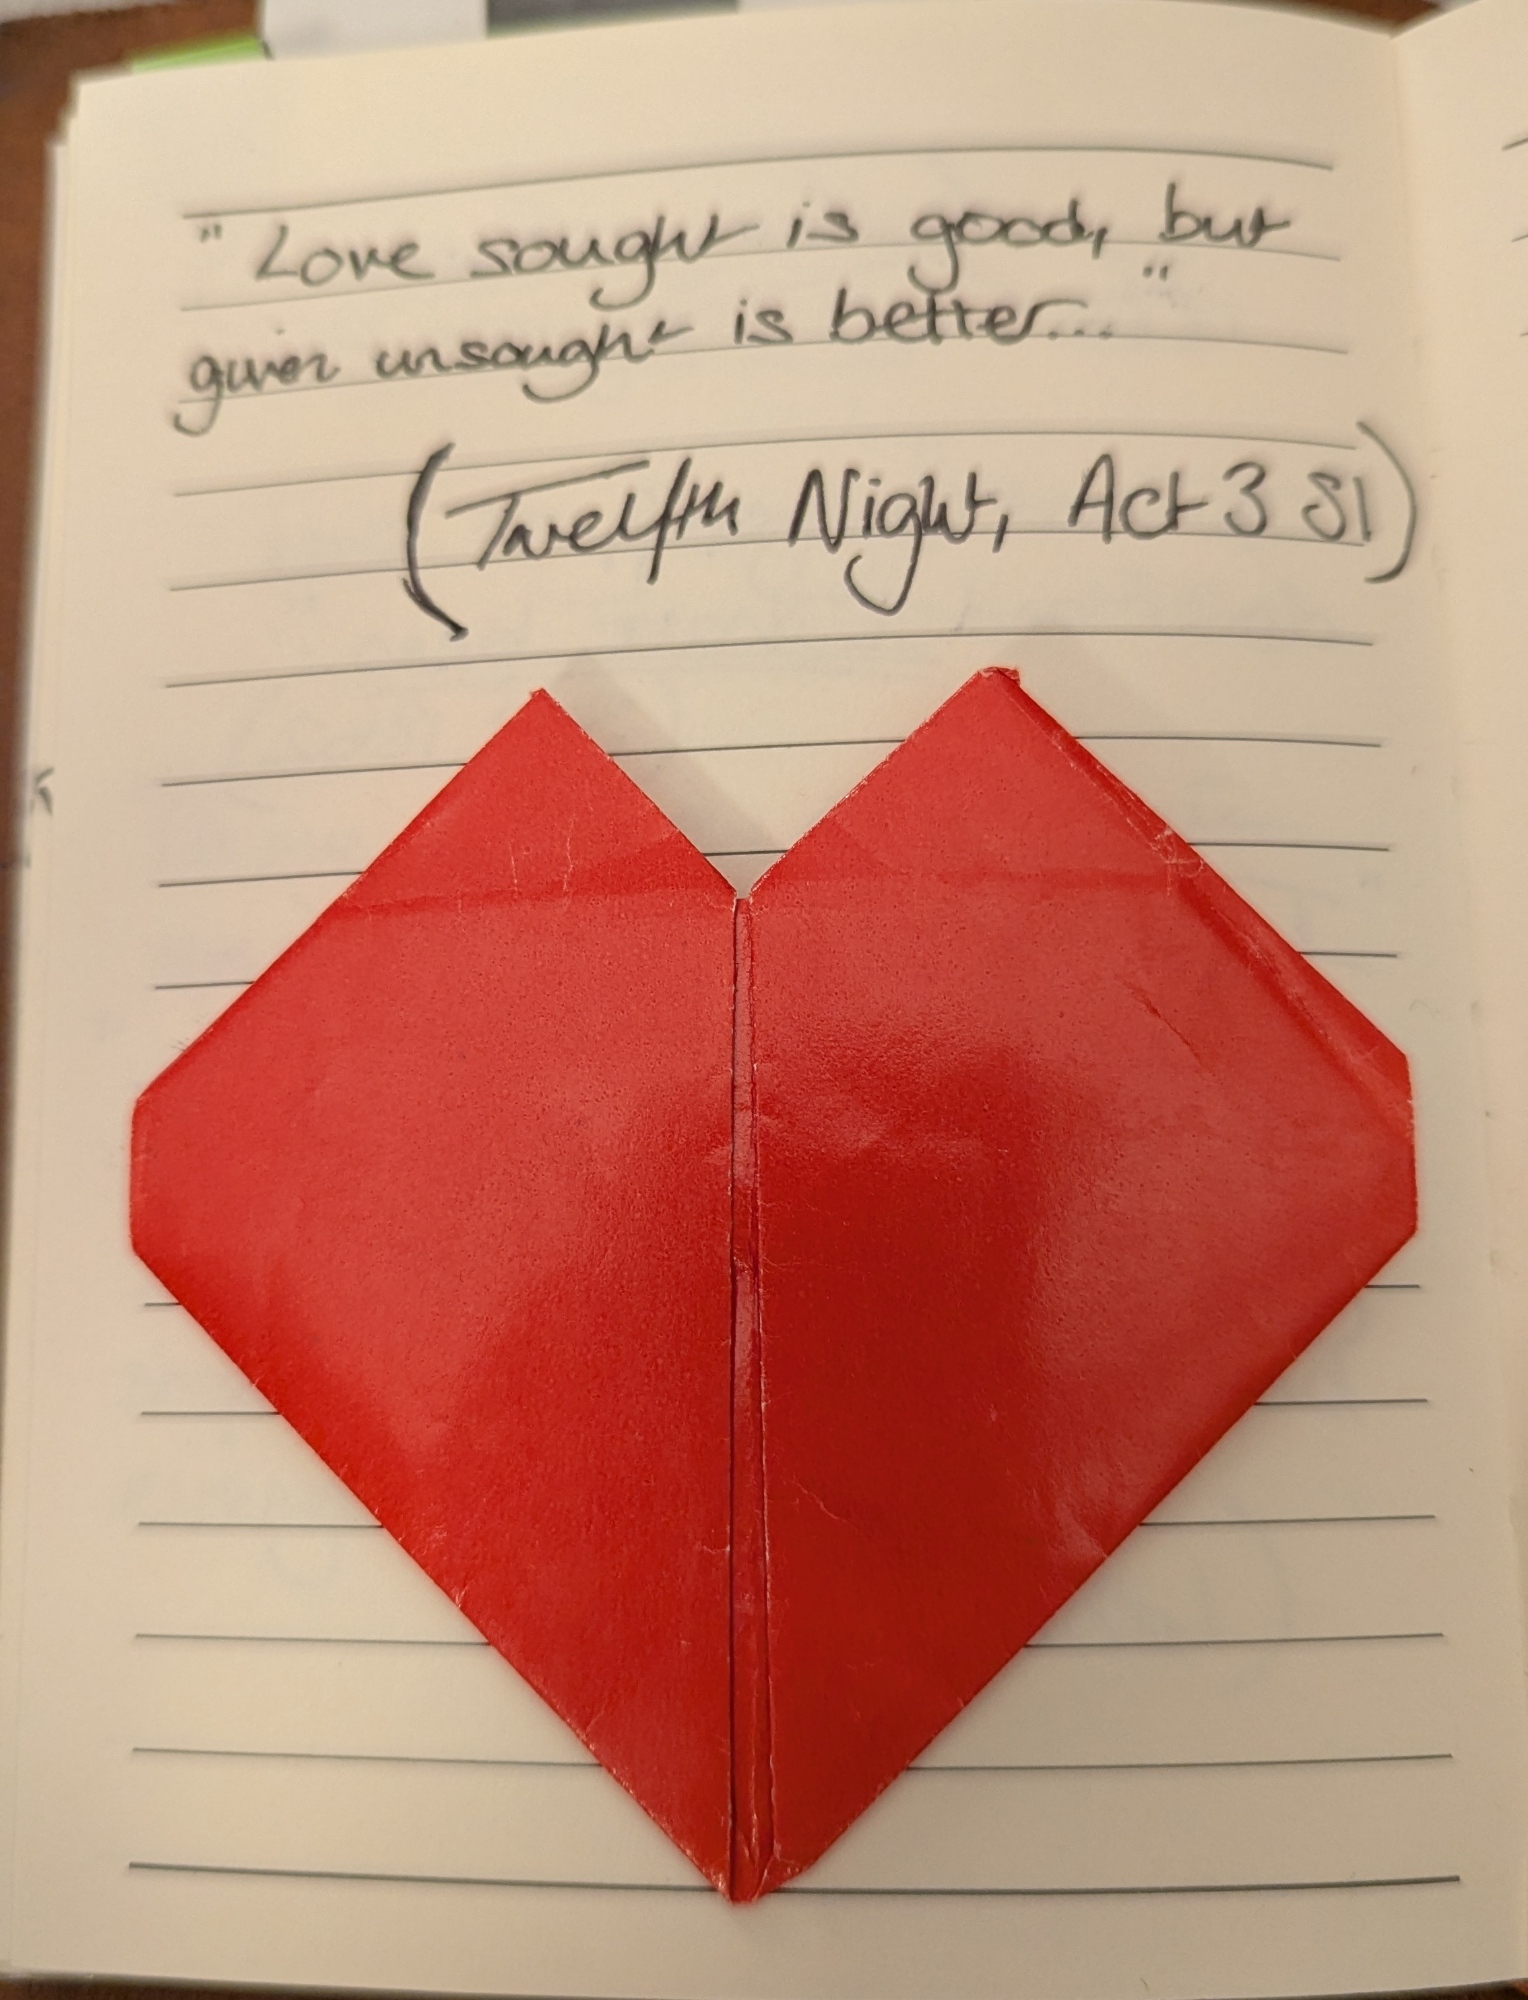 "Love sought is good, but
given unsought is better..."
(Twelfth Night, Act 3 S1)